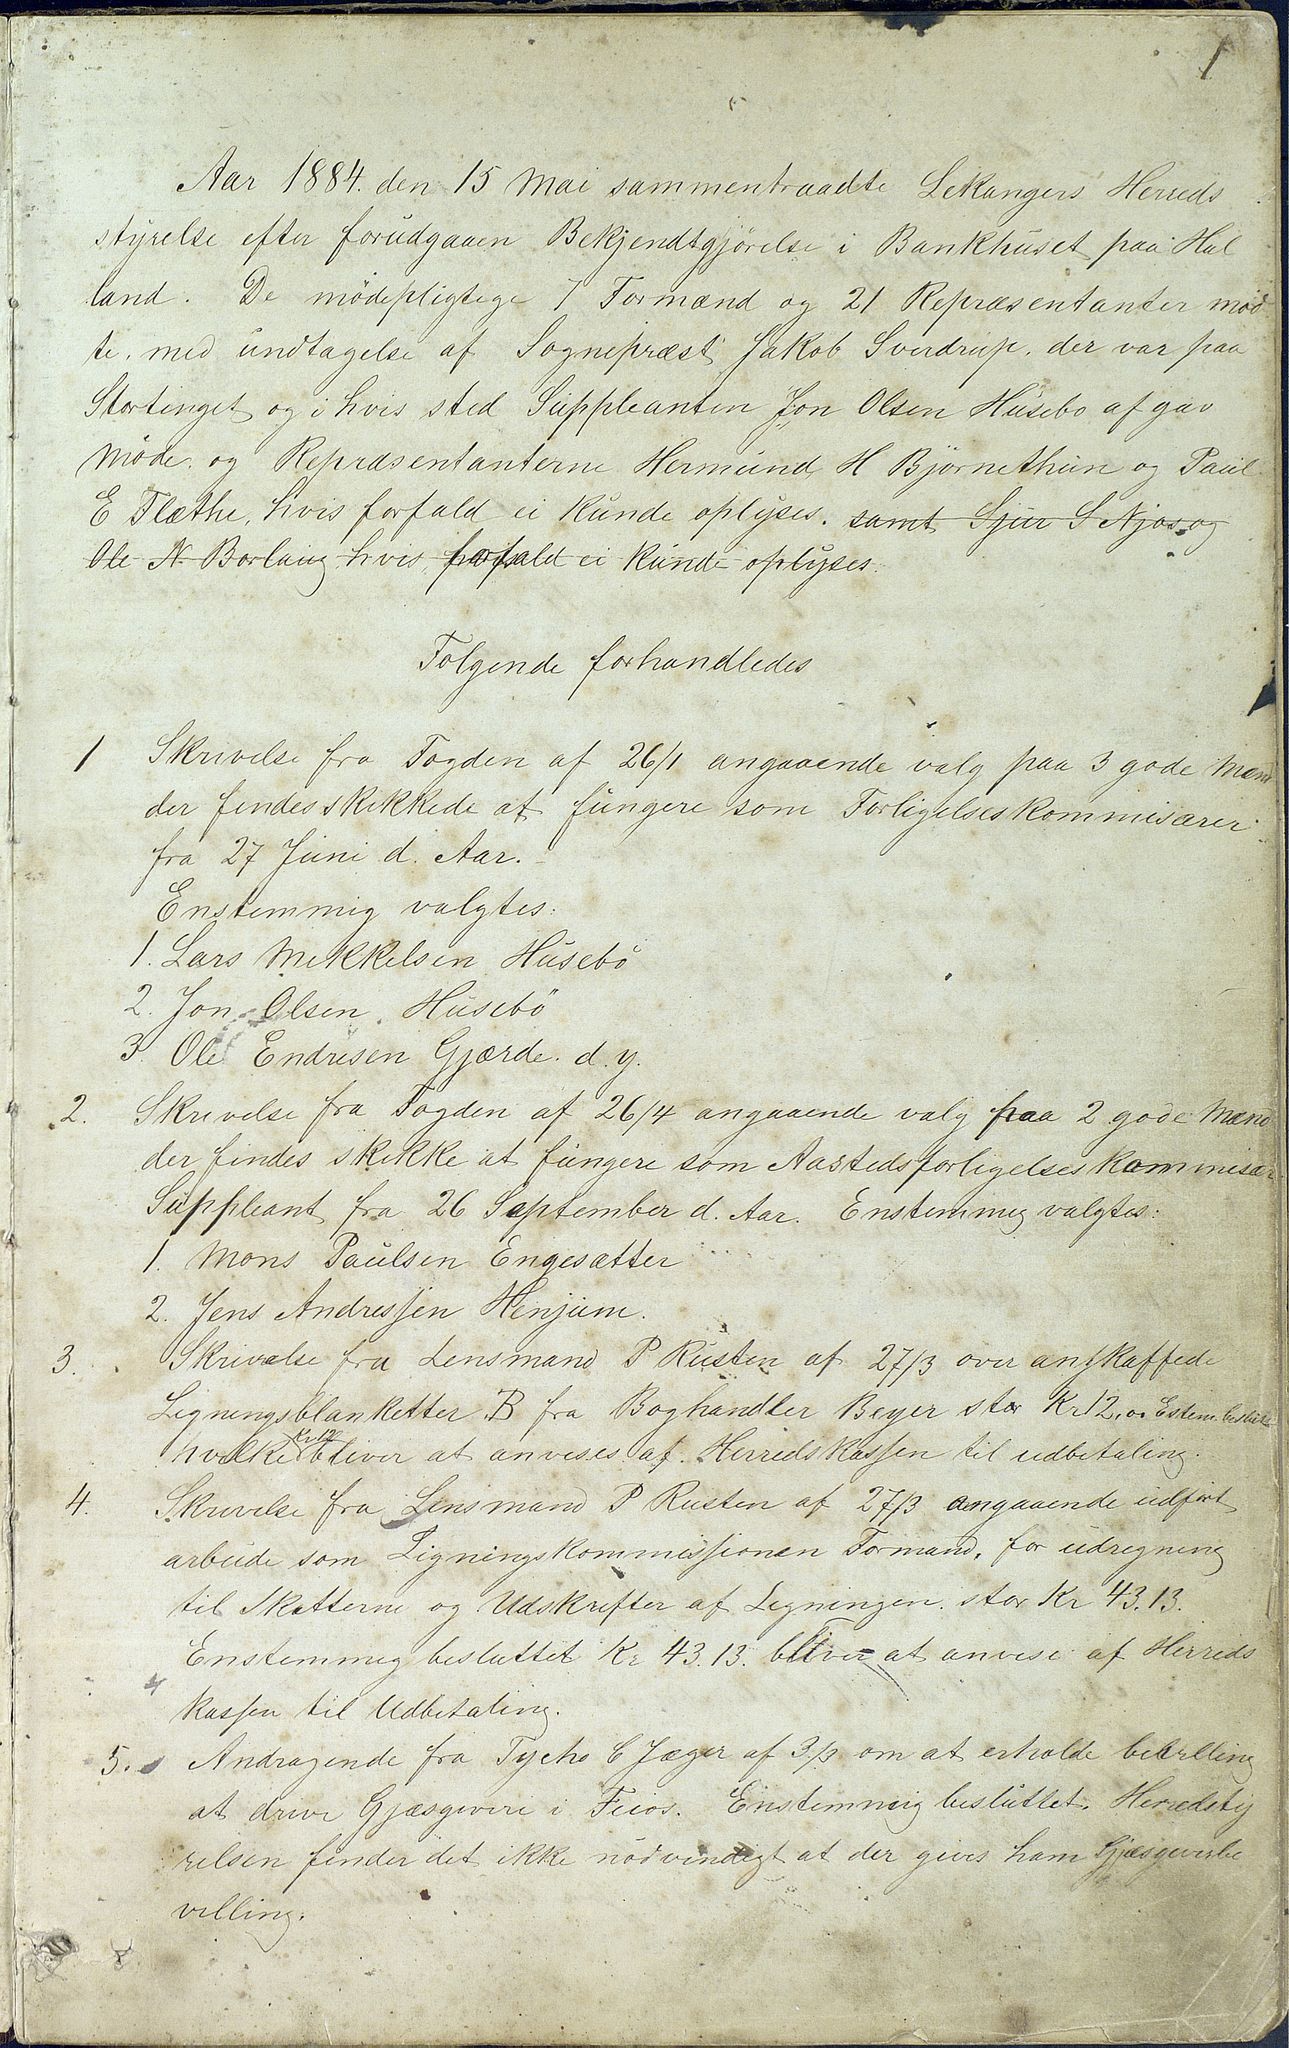 1
Aar 1884. den 15 Mai sammentraadte Lekangers Herreds
styrelse efter forudgaaen Bekjendtgjørelse i Bankhuset paa Hal
land. De mödepligtege 7 Formænd og 21 Repræsentanter möd
te. med undtagelse af Sognepræst Jakob Sverdrup. der var paa
Stortinget og i hvis sted Suppleanten Jon Olsen Husebo af gav
Möde. og Repræsentanterne Hermund H Björnethun og Paul
E Flæthe, hvis forfald ei kunde oplyses. samt Sjur S Njøs og
Ole N. Borlaug hvis forfald ei kunde oplyses.
Folgende forhandledes
1 Skrivelse fra Fogden af 26/1 angaaende valg paa 3 gode Mænd
der findes skikkede at fungere som Forligelseskommisærer
fra 27 Juni d. Aar.
Enstemmig valgtes:
1. Lars Mikkelsen Husebö
2. Jon Olsen Husebö
3. Ole Endresen Gjærde. d. y.
2. Skrivelse fra Fogden af 26/4 angaaende valg paa 2 gode Mænd
der findes skikke at fungere som Aastedsforligelseskommisær
Suppleant fra 26 September d. Aar. Enstemmig valgtes:
1. Mons Paulsen Engesætter
2. Jens Andressen Henjum.
3. Skrivelse fra Lensmand P Rusten af 27/3 over anskaffede
Ligningsblanketter B fra Boghandler Beyer stor Kr 12,00 Estem. besluttet
hvilke Kr 12 bliver at anveses af Herredskassen til udbetaling.
4. Skrivelse fra Lensmand P Rusten af 27/3 angaaende udført
arbeide som Ligningskommissionen Formand, for udregning
til Skatterne og Udskrifter af Legningen. stor Kr 43.13.
Enstemmig besluttet Kr 43.13. bliver at anvese af Herreds
kassen til Udbetaling.
5. Andragende fra Tycho C Jæger af 3/3 om at erholde bevilling
at drive Gjæsgiveri i Feios. Enstemmig besluttet. Herredsty
relsen finder det ikke nödvendigt at der gives ham Gjæsgiverbe
villing.